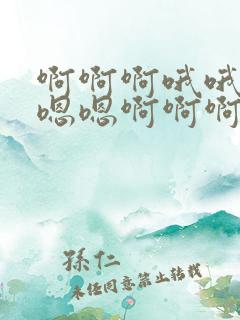 啊啊啊哦哦
嗯嗯啊啊啊
孫仁
未經同意禁止轉載